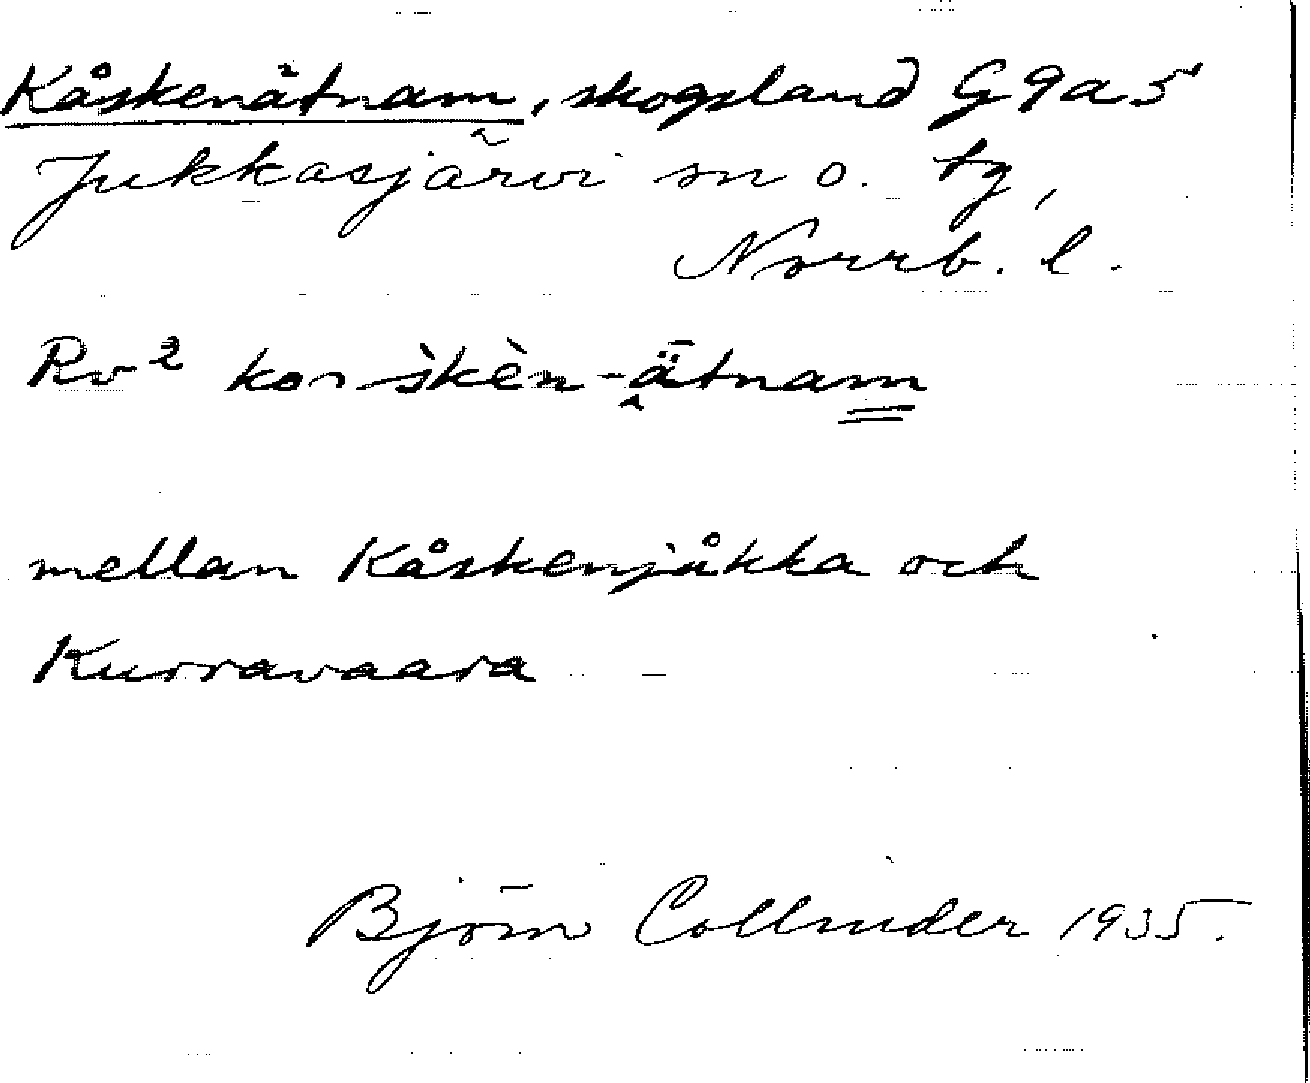 Kåskenätnam, skogsland G9a5
Jukkasjärvi sn o. tg,
Norrb. l.
Rv² korškèn-ätnam
mellan Kåskenjåkka och
Kurravaara
Björn Collinder 1935.